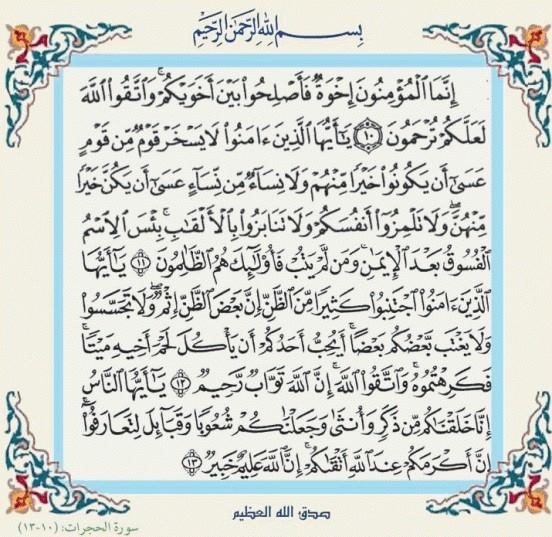 بِسْمِ اللَّهِ الرَّحْمَٰنِ الرَّحِيمِ
إِنَّمَا الْمُؤْمِنُونَ إِخْوَةٌ فَأَصْلِحُوا بَيْنَ أَخَوَيْكُمْ ۚ وَاتَّقُوا اللَّهَ
لَعَلَّكُمْ تُرْحَمُونَ ۝١٠ يَا أَيُّهَا الَّذِينَ ءَامَنُوا لَا يَسْخَرْ قَوْمٌ مِّن قَوْمٍ
عَسَىٰ أَن يَكُونُوا خَيْرًا مِّنْهُمْ وَلَا نِسَاءٌ مِّن نِّسَاءٍ عَسَىٰ أَن يَكُنَّ خَيْرًا
مِّنْهُنَّ ۖ وَلَا تَلْمِزُوا أَنفُسَكُمْ وَلَا تَنَابَزُوا بِالْأَلْقَٰبِ ۖ بِئْسَ الِاسْمُ
الْفُسُوقُ بَعْدَ الْإِيمَٰنِ ۚ وَمَن لَّمْ يَتُبْ فَأُولَٰئِكَ هُمُ الظَّالِمُونَ ۝١١ يَا أَيُّهَا
الَّذِينَ ءَامَنُوا اجْتَنِبُوا كَثِيرًا مِّنَ الظَّنِّ إِنَّ بَعْضَ الظَّنِّ إِثْمٌ ۖ وَلَا تَجَسَّسُوا
وَلَا يَغْتَب بَّعْضُكُم بَعْضًا ۚ أَيُحِبُّ أَحَدُكُمْ أَن يَأْكُلَ لَحْمَ أَخِيهِ مَيْتًا
فَكَرِهْتُمُوهُ ۚ وَاتَّقُوا اللَّهَ ۚ إِنَّ اللَّهَ تَوَّابٌ رَّحِيمٌ ۝١٢ يَا أَيُّهَا النَّاسُ
إِنَّا خَلَقْنَٰكُم مِّن ذَكَرٍ وَأُنثَىٰ وَجَعَلْنَٰكُمْ شُعُوبًا وَقَبَائِلَ لِتَعَارَفُوا ۚ
إِنَّ أَكْرَمَكُمْ عِندَ اللَّهِ أَتْقَىٰكُمْ ۚ إِنَّ اللَّهَ عَلِيمٌ خَبِيرٌ ۝١٣
صدق الله العظيم
سورة الحجرات: (١٠-١٣)